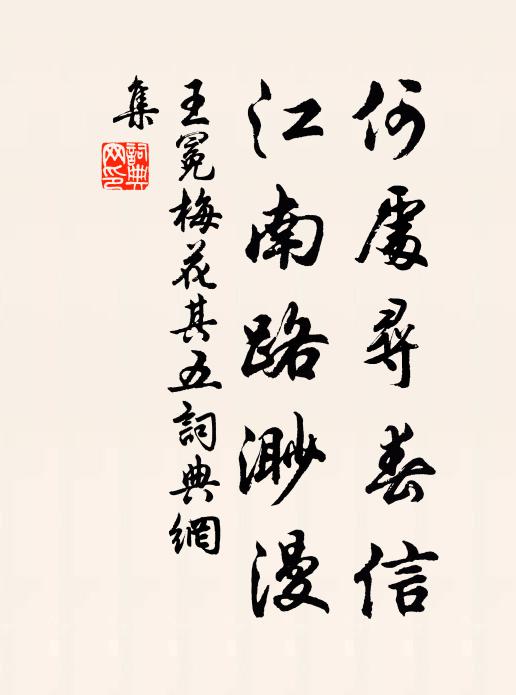 何處尋春信
江南路渺漫
王冕梅花其五詞典網
集
詞典
網印